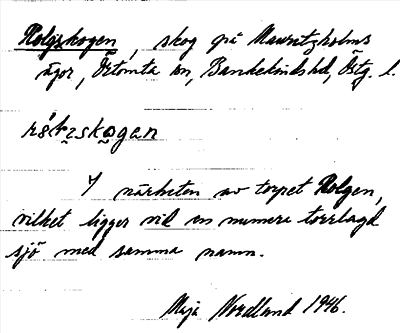 Rolgskogen, skog på Mauritzholms
ägor, Örtomta sn, Bankekinds hd, Östg. l.
I närheten av torpet Rolgen,
vilket ligger vid en numera torrlagd
sjö med samma namn.
Maja Nordlund 1946.